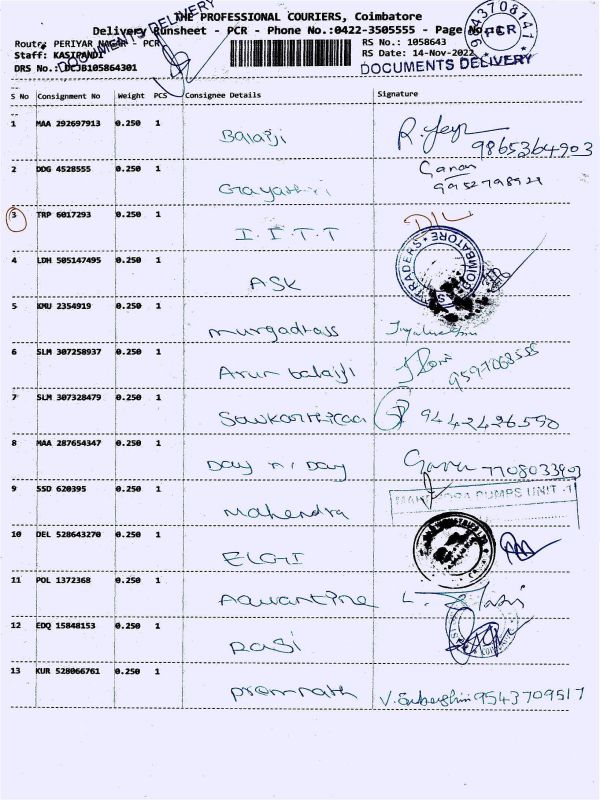 THE PROFESSIONAL COURIERS, Coimbatore
Delivery Runsheet - PCR - Phone No.:0422-3505555 - Page No
Route: PERIYAR NAGAR - PCR
RS No.: 1058643
Staff: KASIPANDI
RS Date: 14-Nov-2022
DRS No.: DCJB105864301
DOCUMENTS DELIVERY
DOCUMENTS DELIVERY
9543708141
PCR
S No Consignment No Weight PCS Consignee Details Signature
1 MAA 292697913 0.250 1 Balaji 9865364903
2 DDG 4528555 0.250 1 Gayathiri
3 TRP 6017293 0.250 1 I.I.T.T
4 LDH 505147495 0.250 1 ASK
TRADERS COIMBATORE
5 KMU 2354919 0.250 1
6 SLM 307258937 0.250 1 Arun balaji 9597068555
7 SLM 307328479 0.250 1 9442426590
8 MAA 287654347 0.250 1 Day n Day 7708033903
9 SSD 620395 0.250 1 Mahendra
PUMPS UNIT -1
10 DEL 528643270 0.250 1 ELGI
11 POL 1372368 0.250 1
12 EDQ 15848153 0.250 1 Rasi
13 KUR 528066761 0.250 1 9543709517